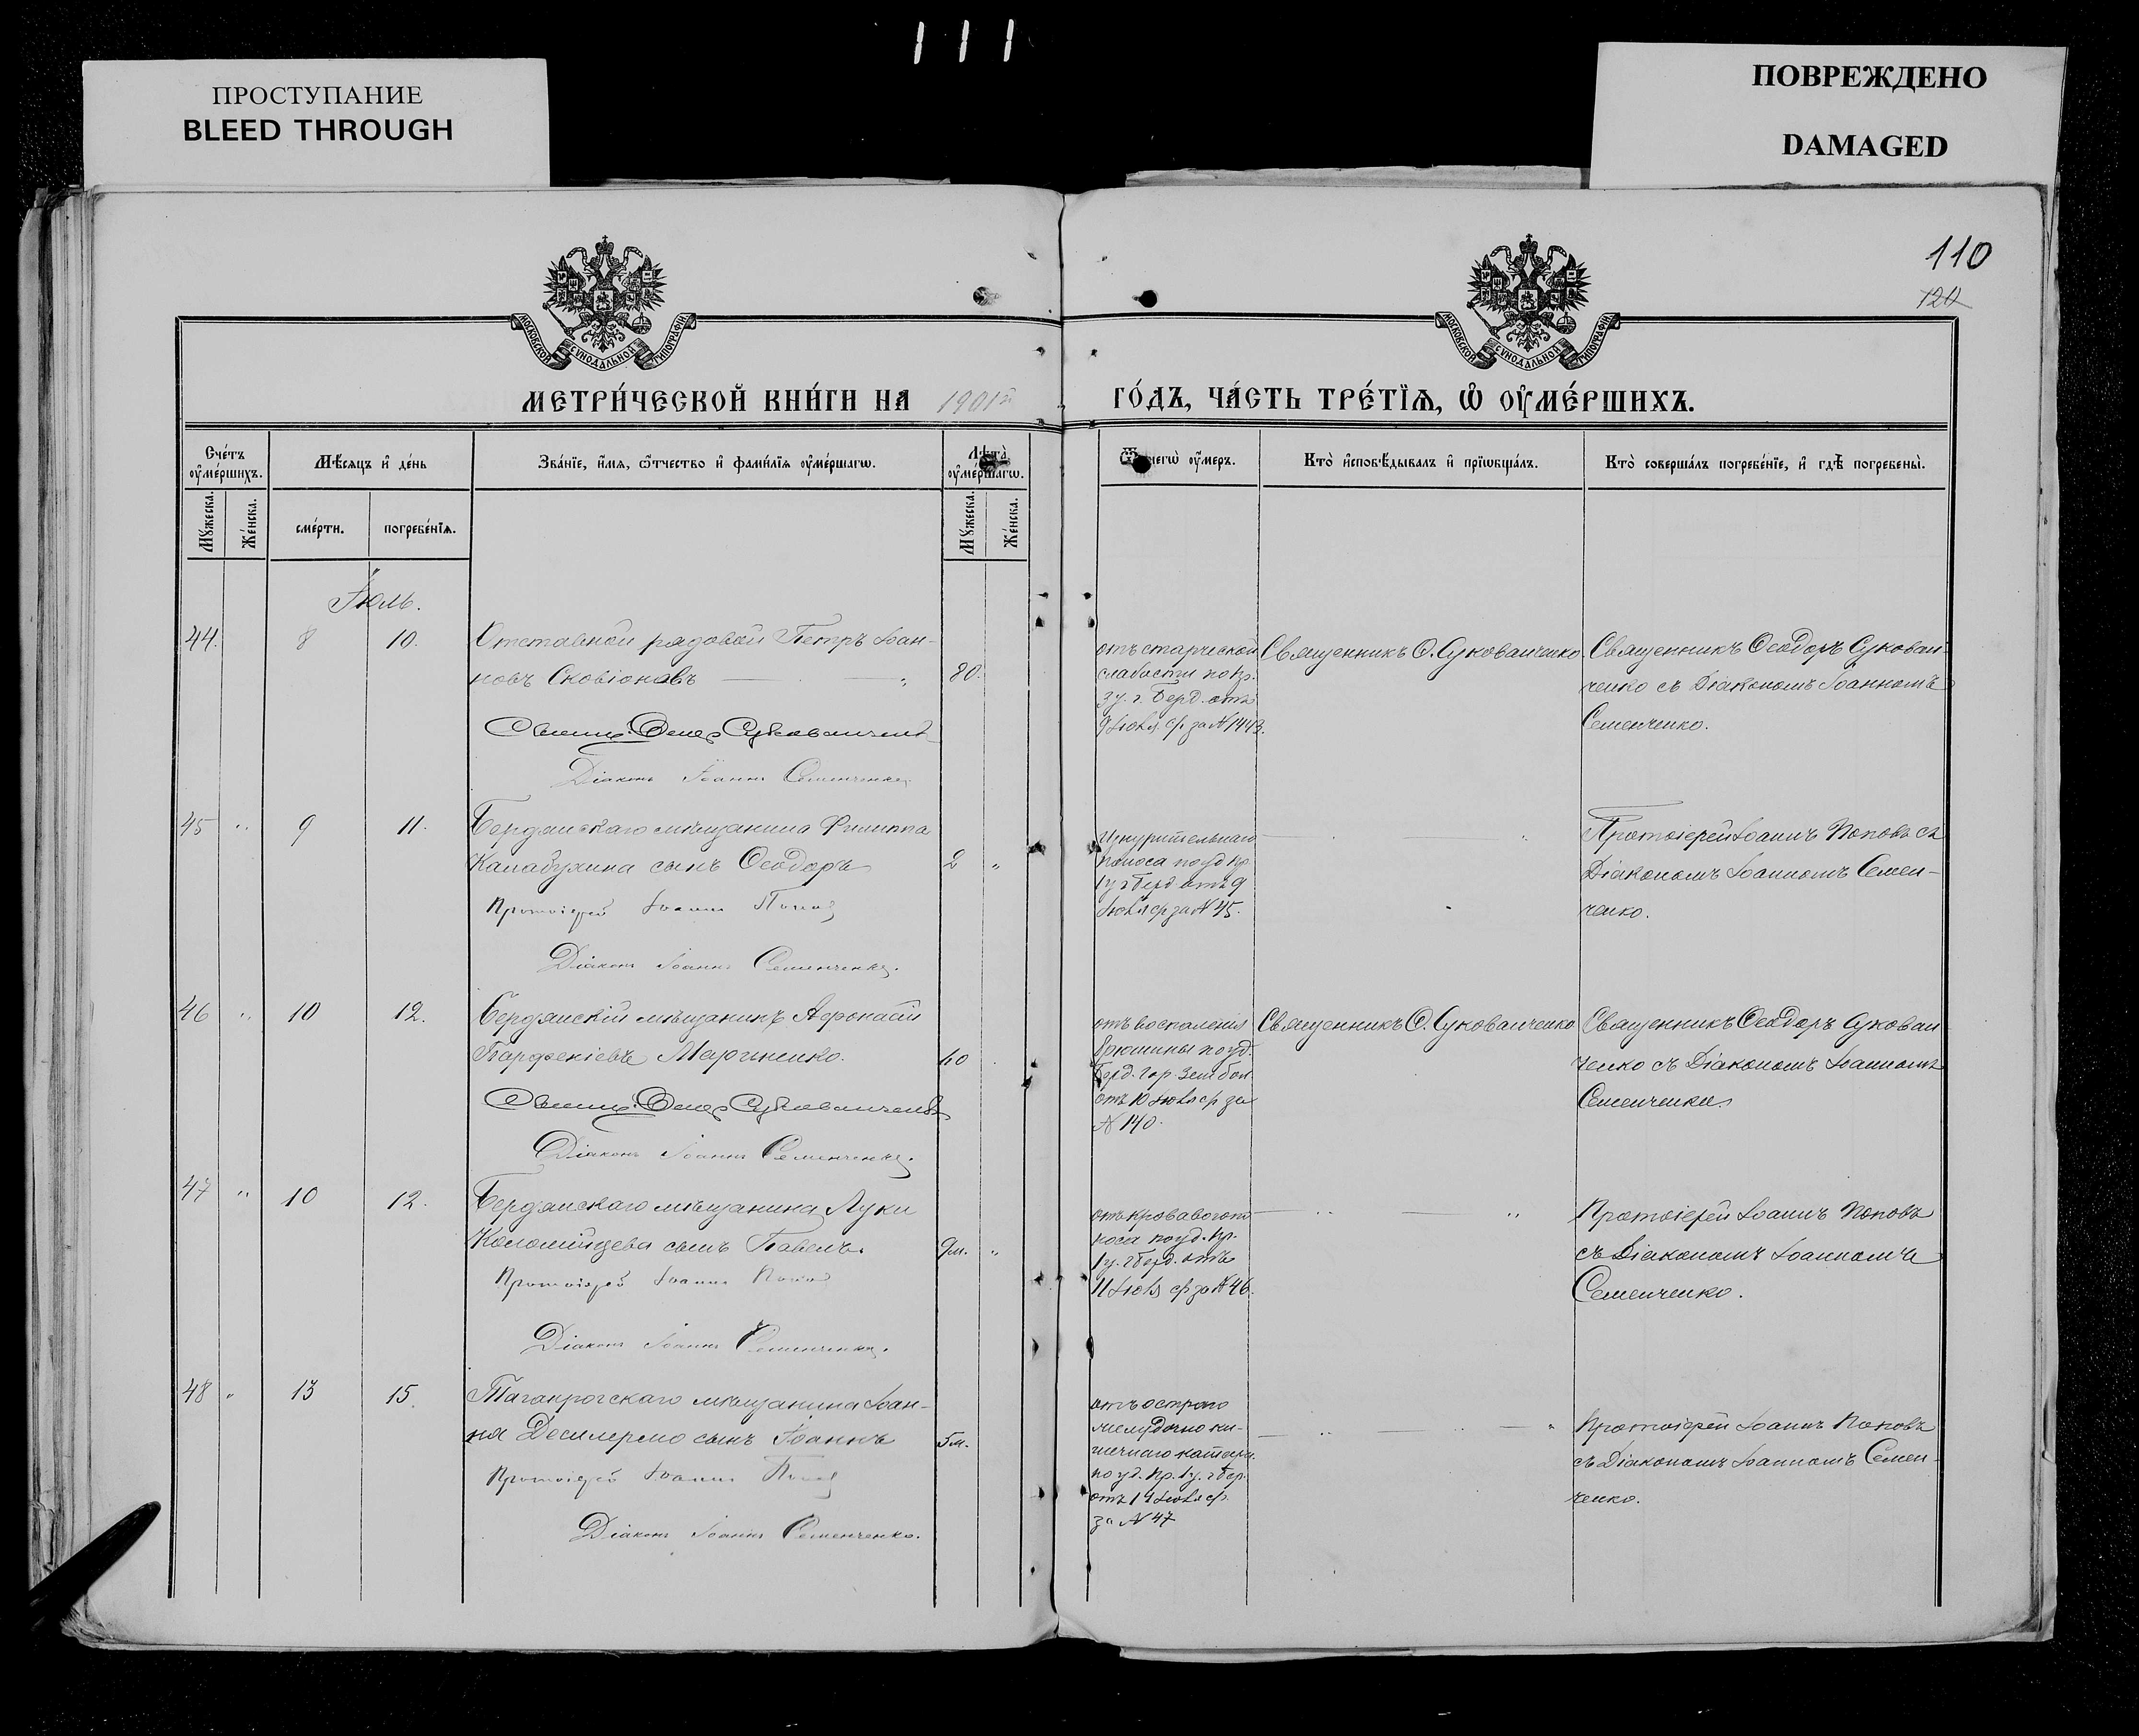 111
ПРОСТУПАНИЕ
BLEED THROUGH
ПОВРЕЖДЕНО
DAMAGED
110
120
МОСКОВСКОЙ СѴНОДАЛЬНОЙ ТИПОГРАФІИ
МОСКОВСКОЙ СѴНОДАЛЬНОЙ ТИПОГРАФІИ
МЕТРИ́ЧЕСКОЙ КНИ́ГИ НА 1901й ГО́ДЪ, ЧА́СТЬ ТРЕ́ТЇѦ, Ѡ҆ ОУ҆МЕ́РШИХЪ.
Сче́тъ оу҆ме́ршихъ.
Мѣ́сяцъ и҆ де́нь
Зва́нїе, и҆́мѧ, ѻ҆́тчество и҆ фами́лїѧ оу҆ме́ршагѡ.
Лѣ́та оу҆ме́ршагѡ.
Ѿ чегѡ̀ оу҆́меръ.
Кто̀ и҆сповѣ́дывалъ и҆ прїѡбща́лъ.
Кто̀ соверша́лъ погребе́нїе, и҆ гдѣ̀ погребены̀.
Мꙋ́жеска. Же́нска.
сме́рти. погребе́нїѧ.
Мꙋ́жеска. Же́нска.
Іюль.
44. 8 10. Отставной рядовой Петръ Іоан-
новъ Сковіоновъ 80.
Діаконъ Іоаннъ Семенченко
отъ старческой
слабости по
9 Іюля с/г за № 1443.
Священникъ Ѳ. Сукованченко.
Священникъ Ѳеодоръ Сукован-
ченко съ Діакономъ Іоанномъ
Семенченко.
45 " 9 11. Бердянскаго мѣщанина Филиппа
Калабухина сынъ Ѳеодоръ 2 "
Протоіерей Іоаннъ Поповъ
Діаконъ Іоаннъ Семенченко.
Изнурительнаго
поноса по уд. вр.
1 у. г. Берд. отъ 9
Іюля с/г за № 45.
Протоіерей Іоаннъ Поповъ съ
Діакономъ Іоанномъ Семен-
ченко.
46 " 10 12. Бердянскій мѣщанинъ Афонасій
Парфеніевъ Мариненко. 40
Діаконъ Іоаннъ Семенченко.
отъ воспаленія
брюшины по уд.
Берд. гор. Зем бол.
отъ 10 Іюля с/г за
№ 140.
Священникъ Ѳ. Сукованченко
Священникъ Ѳеодоръ Сукован
ченко съ Діакономъ Іоанномъ
Семенченко.
47 " 10 12. Бердянскаго мѣщанина Луки
Коломійцева сынъ Павелъ. 9 м. "
Протоіерей Іоаннъ Поповъ
Діаконъ Іоаннъ Семенченко.
отъ кроваваго по
носа по уд. вр.
1 у. г Берд. отъ
11 Іюля с/г за № 46.
Протоіерей Іоаннъ Поповъ
съ Діакономъ Іоанномъ
Семенченко.
48 " 13 15. Таганрогскаго мѣщанина Іоан-
на сынъ Іоаннъ 5 м.
Протоіерей Іоаннъ Поповъ
Діаконъ Іоаннъ Семенченко.
отъ остраго
желудочно ки-
шечнаго катара
по уд. вр. 1 у. г Бер.
отъ 14 Іюля с/г.
за № 47
Протоіерей Іоаннъ Поповъ
съ Діакономъ Іоанномъ Семен-
ченко.